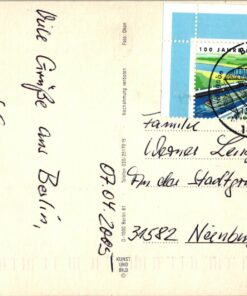 Viele Grüße aus Berlin,
07.04.2005
Foto: Oken
Nachdruck verboten
Telefon 030-2517015
D-1000 Berlin 61
KUNST
UND
BILD
100 JAHR
Familie
Werner
An der Stadtgr
31582 Nienbur